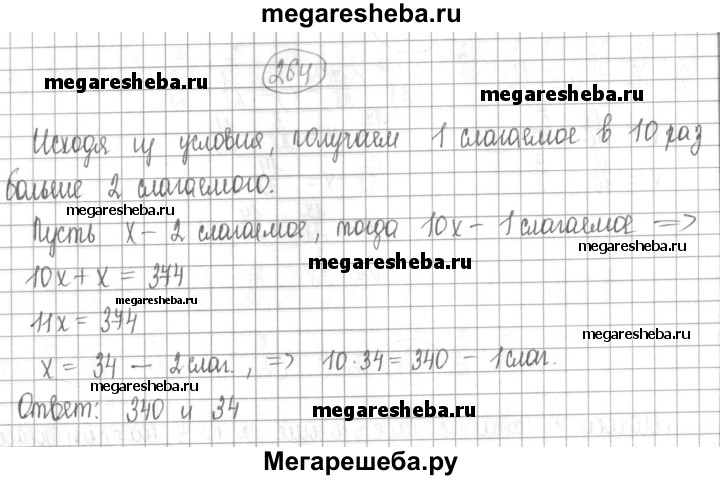 megaresheba.ru
264
megaresheba.ru
megaresheba.ru
Исходя из условия, получаем 1 слагаемое в 10 раз
больше 2 слагаемого.
megaresheba.ru
Пусть x - 2 слагаемое, тогда 10x - 1 слагаемое =>
megaresheba.ru
10x + x = 374
megaresheba.ru
11x = 374
megaresheba.ru
x = 34 - 2 слаг., => 10·34 = 340 - 1 слаг.
megaresheba.ru
Ответ: 340 и 34
megaresheba.ru
Мегарешеба.ру